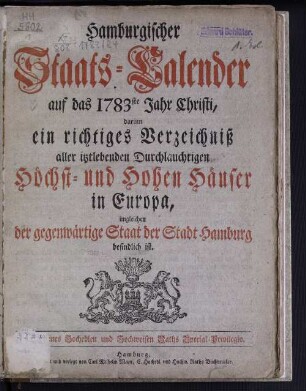 Hamburgischer
Staats-Calender
auf das 1783ste Jahr Christi,
darinn
ein richtiges Verzeichniß
aller itztlebenden Durchlauchtigen
Höchst- und Hohen Häuser
in Europa,
imgleichen
der gegenwärtige Staat der Stadt Hamburg
befindlich ist.
Eines Hochedlen und Hochweisen Raths Special-Privilegio.
Hamburg,
und verlegt von Carl Wilhelm Meyn, E. Hochedl. und Hochw. Raths Buchdrucker.